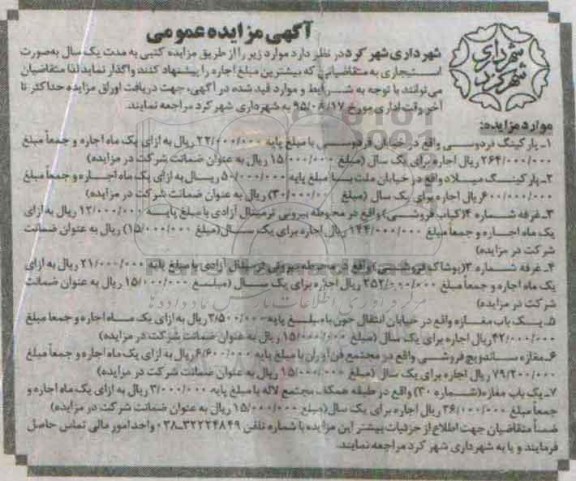 آگهی مزایده عمومی
شهرداری شهرکرد
شهرداری شهر کرد در نظر دارد موارد زیر را از طریق مزایده کتبی به مدت یک سال به‌صورت
استیجاری به متقاضیانی که بیشترین مبلغ اجاره را پیشنهاد کنند واگذار نماید لذا متقاضیان
می توانند با توجه به شرایط و موارد قید شده در آگهی، جهت دریافت اوراق مزایده حداکثر تا
آخر وقت اداری مورخ ۹۵/۰۸/۱۷ به شهرداری شهر کرد مراجعه نمایند.
موارد مزایده:
۱ـ پارکینگ فردوسی واقع در خیابان فردوسی با مبلغ پایه ۲۲/۰۰۰/۰۰۰ ریال به ازای یک ماه اجاره و جمعاً مبلغ
۲۶۴/۰۰۰/۰۰۰ ریال اجاره برای یک سال (مبلغ ۱۵/۰۰۰/۰۰۰ ریال به عنوان ضمانت شرکت در مزایده)
۲ـ پارکینگ میلاد واقع در خیابان ملت با مبلغ پایه ۵۰/۰۰۰/۰۰۰ ریال به ازای یک ماه اجاره و جمعاً مبلغ
۶۰۰/۰۰۰/۰۰۰ ریال اجاره برای یک سال (مبلغ ۳۰/۰۰۰/۰۰۰ ریال به عنوان ضمانت شرکت در مزایده)
۳ـ غرفه شماره ۲ (کباب فروشی) واقع در محوطه بیرونی ترمینال آزادی با مبلغ پایه ۱۲/۰۰۰/۰۰۰ ریال به ازای
یک ماه اجاره و جمعاً مبلغ ۱۴۴/۰۰۰/۰۰۰ ریال اجاره برای یک سال (مبلغ ۱۵/۰۰۰/۰۰۰ ریال به عنوان ضمانت
شرکت در مزایده)
۴ـ غرفه شماره ۳ (پوشاک فروشی) واقع در محوطه بیرونی ترمینال آزادی با مبلغ پایه ۲۱/۰۰۰/۰۰۰ ریال به ازای
یک ماه اجاره و جمعاً مبلغ ۲۵۲/۰۰۰/۰۰۰ ریال اجاره برای یک سال (مبلغ ۱۵/۰۰۰/۰۰۰ ریال به عنوان ضمانت
شرکت در مزایده)
۵ـ یک باب مغازه واقع در خیابان انتقال خون با مبلغ پایه ۳/۵۰۰/۰۰۰ ریال به ازای یک ماه اجاره و جمعاً مبلغ
۴۲/۰۰۰/۰۰۰ ریال اجاره برای یک سال (مبلغ ۱۵/۰۰۰/۰۰۰ ریال به عنوان ضمانت شرکت در مزایده)
۶ـ مغازه ساندویچ فروشی واقع در مجتمع فن آوران با مبلغ پایه ۶/۶۰۰/۰۰۰ ریال به ازای یک ماه اجاره و جمعاً مبلغ
۷۹/۲۰۰/۰۰۰ ریال اجاره برای یک سال (مبلغ ۱۵/۰۰۰/۰۰۰ ریال به عنوان ضمانت شرکت در مزایده)
۷ـ یک باب مغازه (شماره ۳۰) واقع در طبقه همکف مجتمع لاله با مبلغ پایه ۳/۰۰۰/۰۰۰ ریال به ازای یک ماه اجاره و
جمعاً مبلغ ۳۶/۰۰۰/۰۰۰ ریال اجاره برای یک سال (مبلغ ۱۵/۰۰۰/۰۰۰ ریال به عنوان ضمانت شرکت در مزایده)
ضمناً متقاضیان جهت اطلاع از جزئیات بیشتر این مزایده با شماره تلفن ۳۲۲۲۴۸۴۹-۰۳۸ واحد امور مالی تماس حاصل
فرمایند و یا به شهرداری شهر کرد مراجعه نمایند.